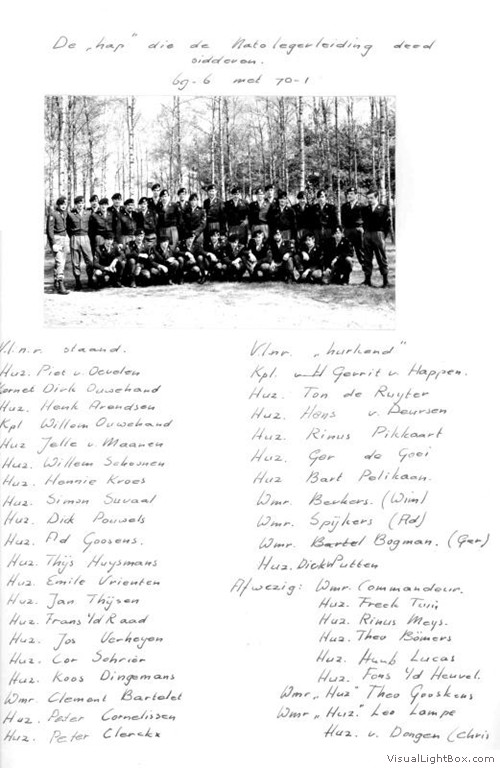 De "hap" die de Nato legerleiding deed
sidderen.
bg-6 met 70-1
V.l.n.r. staand.
Huz. Piet v. Oevelen
Kornet Dirk Ouwehand
Huz. Henk Arendsen
Kpl Willem Ouwehand
Huz Jelle v. Maanen
Huz. Willem Schoonen
Huz. Hennie Kroes
Huz. Simon Suvaal
Huz. Dick Pouwels
Huz. Ad Goosens.
Huz. Thijs Huysmans
Huz. Emile Vrienten
Huz. Jan Thijsen
Huz. Frans v/d Raad
Huz. Jos Verhoyen
Huz. Cor Schrier
Huz. Koos Dingemans
Wmr. Clement Bartelet
Huz. Peter Cornelissen
Huz. Peter Clerckx
Vlnr. "hurkend"
Kpl. Gerrit v. Happen.
Huz. Ton de Ruyter
Huz. Hans v. Deursen
Huz. Rinus Pikkaart
Huz. Ger de Goei
Huz Bart Pelikaan.
Wmr. Berkers. (Wim)
Wmr. Spijkers (Ad)
Wmr. Bartel Bogman. (Ger)
Huz. Dick Putten
Afwezig: Wmr. Commandeur.
Huz. Freek Tuin
Huz. Rinus Meys.
Huz. Theo Bömers
Huz. Huub Lucas
Huz. Fons v/d Heuvel.
Wmr "Huz" Theo Gooskens
Wmr "Huz." Leo Lampe
Huz. v. Dongen (Chris
VisualLightBox.com